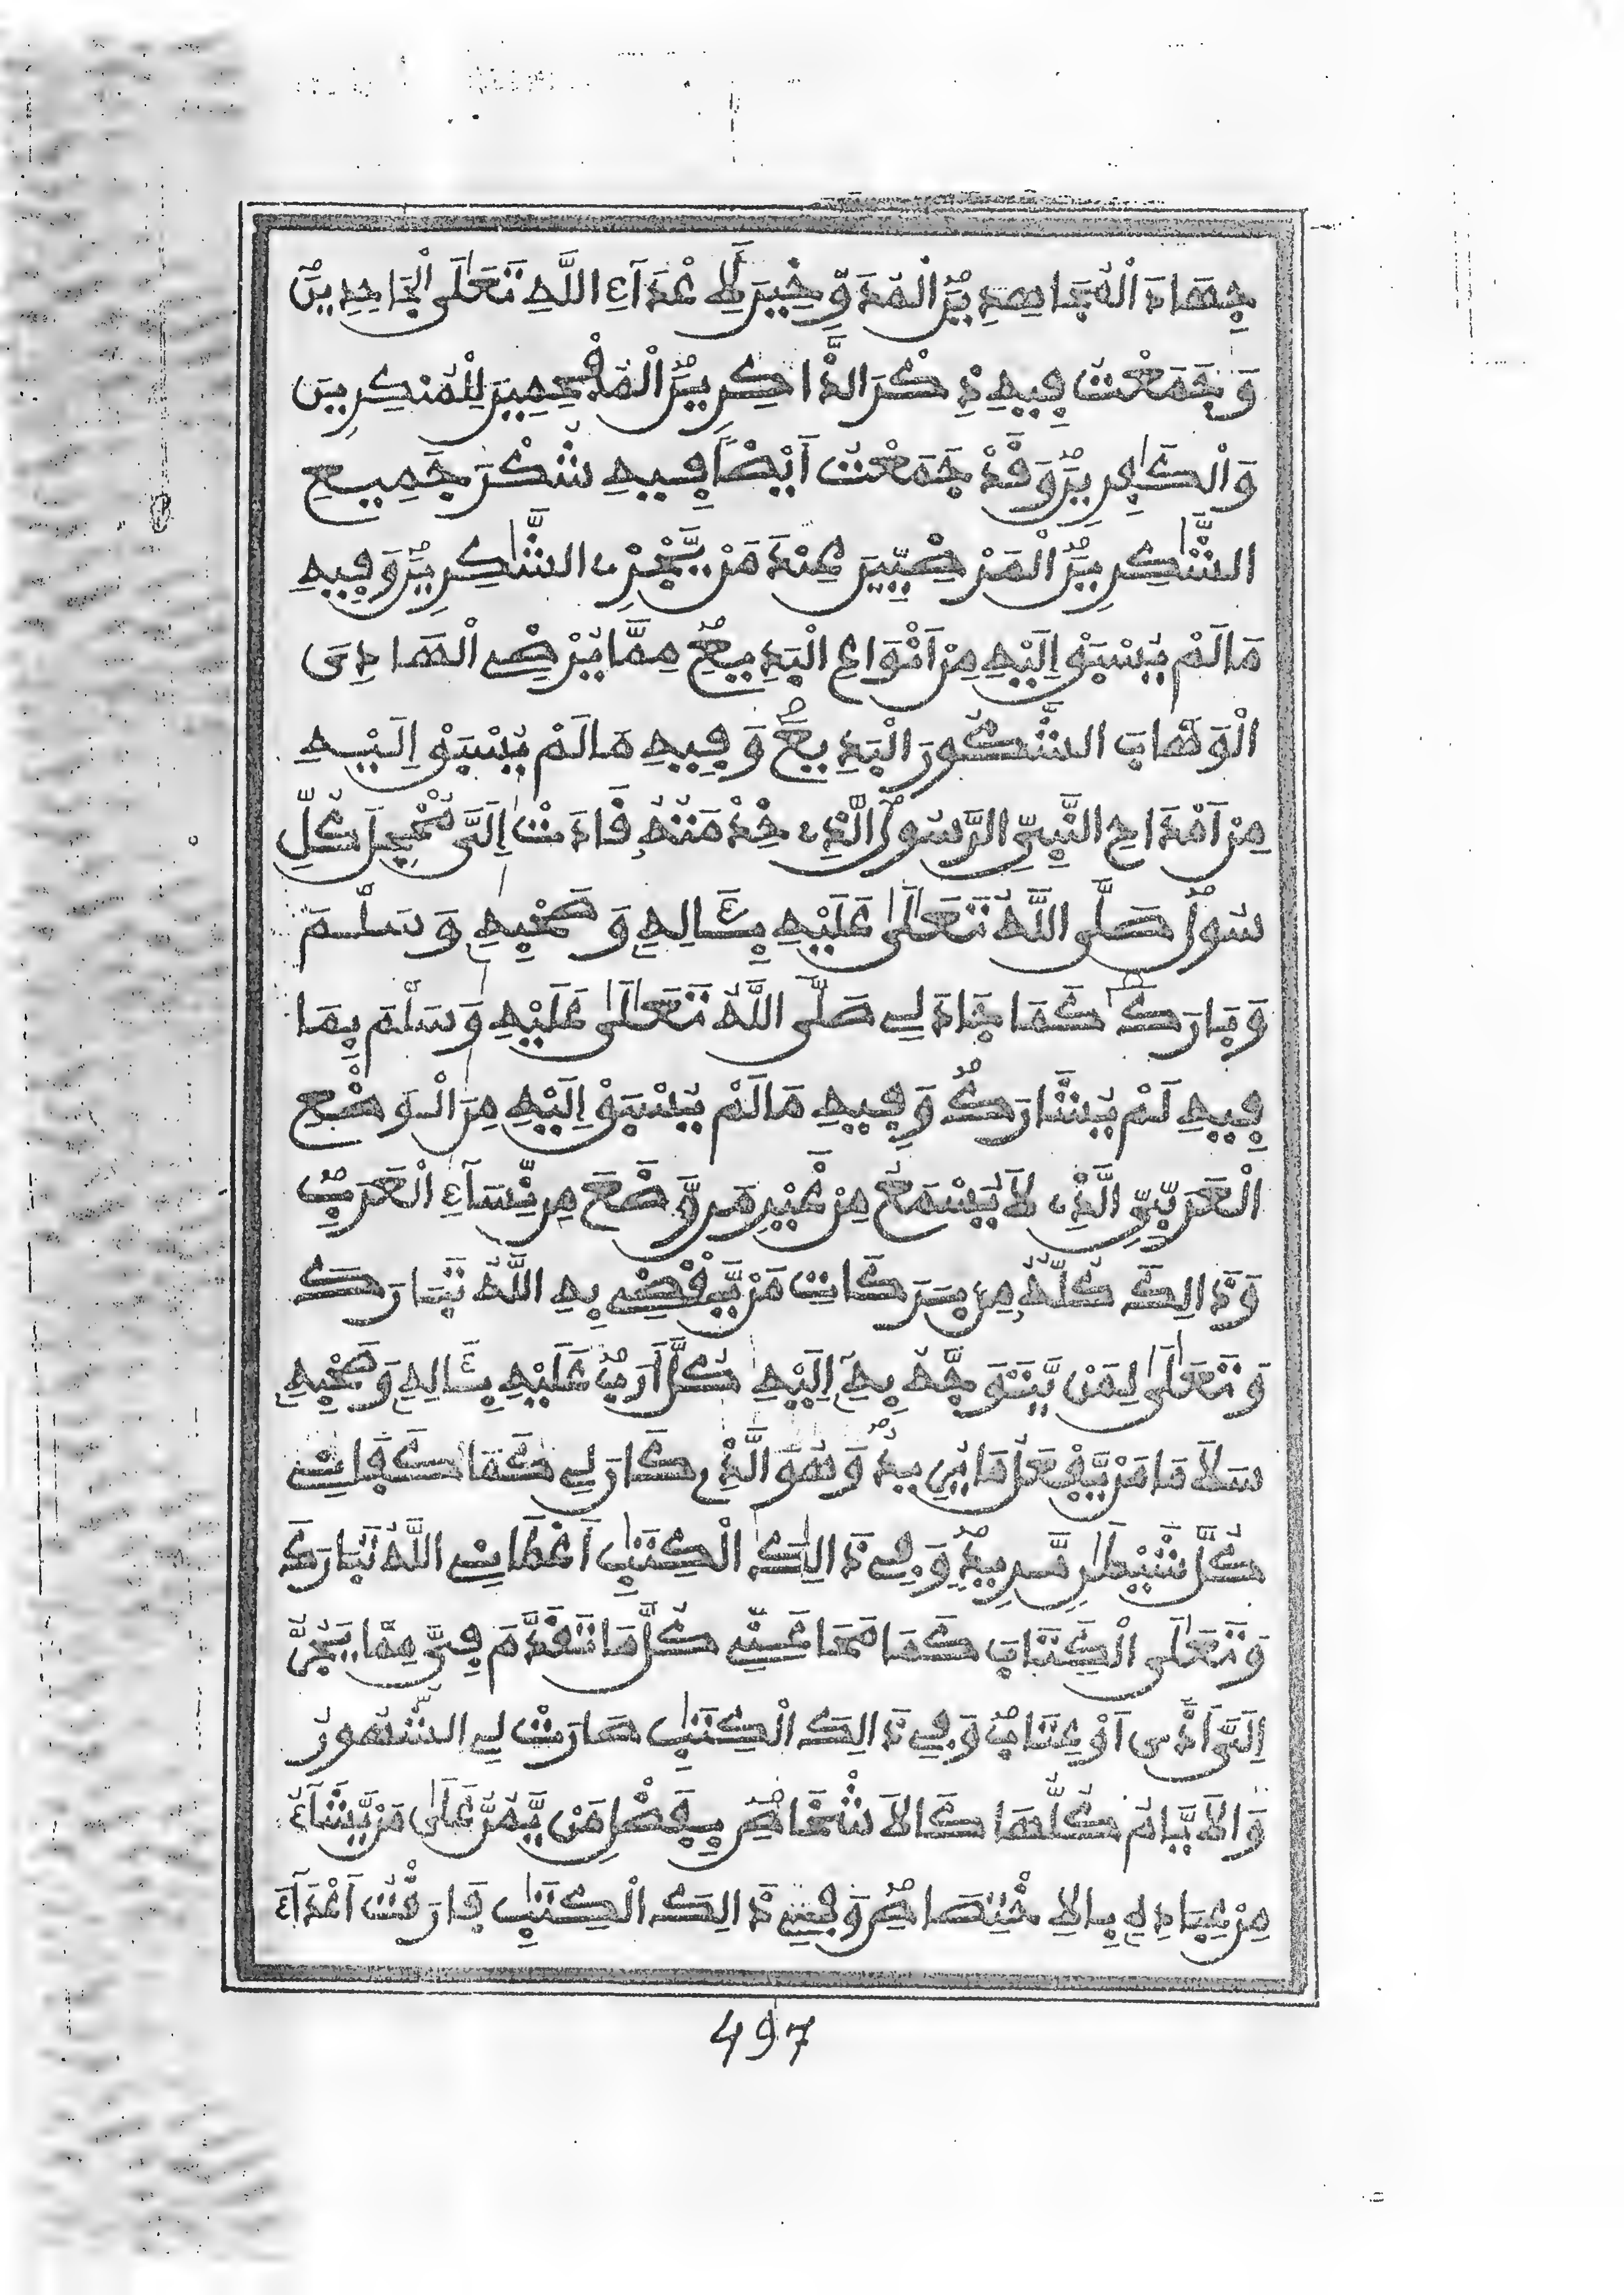 جِهَادَ الْمُجَاهِدِينَ الْمُدَوِّخِينَ لِأَعْدَآءِ اللَّهِ تَعَلَى الْجَاحِدِينَ
وَجَمَعْتُ فِيهِ ذِكْرَ الذَّاكِرِينَ الْمُفْحِمِينَ لِلْمُنكِرِينَ
وَالْكَٰفِرِينَ وَقَدْ جَمَعْتُ أَيْضًا فِيهِ شُكْرَ جَمِيعِ
الشَّٰكِرِينَ الْمَرْضِيِّينَ عِندَ مَنْ يَّجْزِى الشَّٰكِرِينَ وَفِيهِ
مَا لَمْ يُسْبَقْ إِلَيْهِ مِنْ أَنْوَاعِ الْبَدِيعِ مِمَّا يُرْضِى الْهَادِىَ
الْوَهَّابَ الشَّكُورَ الْبَدِيعَ وَفِيهِ مَا لَمْ يُسْبَقْ إِلَيْهِ
مِنْ أَمْدَاحِ النَّبِيِّ الرَّسُولِ الَّذِى خِدْمَتُهُ قَادَتْ إِلَىَّ مُخْجِلَ كُلِّ
سُولٍ صَلَّى اللَّهُ تَعَلَىٰ عَلَيْهِ بِـَٔالِهِ وَصَحْبِهِ وَسَلَّمَ
وَبَارَكَ كَمَا جَادَ لِى صَلَّى اللَّهُ تَعَلَىٰ عَلَيْهِ وَسَلَّمَ بِمَا
فِيهِ لَمْ يُشَارَكْ وَفِيهِ مَا لَمْ يُسْبَقْ إِلَيْهِ مِنَ الْوَضْعِ
الْعَرَبِيِّ الَّذِى لَا يُسْمَعُ مِنْ غَيْرِ مَن وَّضَعَ مِن نِّسَآءِ الْعَرَبِ
وَذَالِكَ كُلُّهُ مِن بَرَكَاتِ مَنْ يَّقْضِى بِهِ اللَّهُ تَبَارَكَ
وَتَعَلَىٰ لِمَنْ يَّتَوَجَّهُ بِهِ إِلَيْهِ كُلَّ أَرَبٍ عَلَيْهِ بِـَٔالِهِ وَصَحْبِهِ
سَلَامَا مَنْ يَّفْعَلُ مَا يُرِيدُ وَهُوَ الَّذِى كَانَ لِى كَمَا كَفَانِى
كُلَّ شَيْطَٰنٍ مَّرِيدٍ وَفِى ذَالِكَ الْكِتَٰبِ أَعْطَانِى اللَّهُ تَبَارَكَ
وَتَعَلَى الْكِتَابَ كَمَا مَحَا عَنِّى كُلَّ مَا تَقَدَّمَ فِىَّ مِمَّا يَجُرُّ
إِلَىَّ أَذًى أَوْ عِتَابٍ وَفِى ذَالِكَ الْكِتَٰبِ صَارَتْ لِى الشُّهُورُ
وَالَايَّامُ كُلُّهَا كَالَاشْخَاصِ بِفَضْلِ مَنْ يَّمُرُّ عَلَىٰ مَنْ يَّشَآءُ
مِنْ عِبَادِهِ بِالِاخْتِصَاصِ وَفِى ذَالِكَ الْكِتَٰبِ فَارَقْتُ أَعْدَآءَ
497